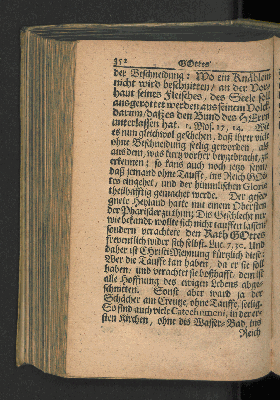 352 GOttes
der Beschneidung: Wo ein Knäblein
nicht wird beschnitten/ an der Vor-
haut seines Fleisches, des Seele soll
ausgerottet werden aus seinem Volck/
darum/ daß es den Bund des HErrn
unterlassen hat. 1. Mos. 17, 14. Wie
es nun gleichwol geschehen, daß ihrer viel
ohne Beschneidung seelig geworden, als
aus dem, was kurtz vorher beygebracht, zu
erkennen; so kans auch noch jezo seyn/
daß jemand ohne Tauffe, ins Reich GOt-
tes eingehet, und der himmlischen Gloria
theilhafftig gemachet werde. Der geseg-
nete Heyland hatte mit einem Obersten
der Pharisäer zu thun; Diß Geschlecht nur
wie bekandt, wollte sich nicht tauffen lassen/
sondern verachtete den Rath GOttes
freventlich wider sich selbst. Luc. 7, 30. Und
daher ist Christi Meinung kürtzlich diese:
Wer die Tauffe kan haben, da er sie soll
haben, und verachtet sie boßhafft, dem ist
alle Hoffnung des ewigen Lebens abge-
schnitten. Sonst aber ward ja der
Schächer am Creutze, ohne Tauffe, seelig.
So sind auch viele Catechumeni, in der er-
sten Kirchen, ohne das Wasser-Bad, ins
Reich